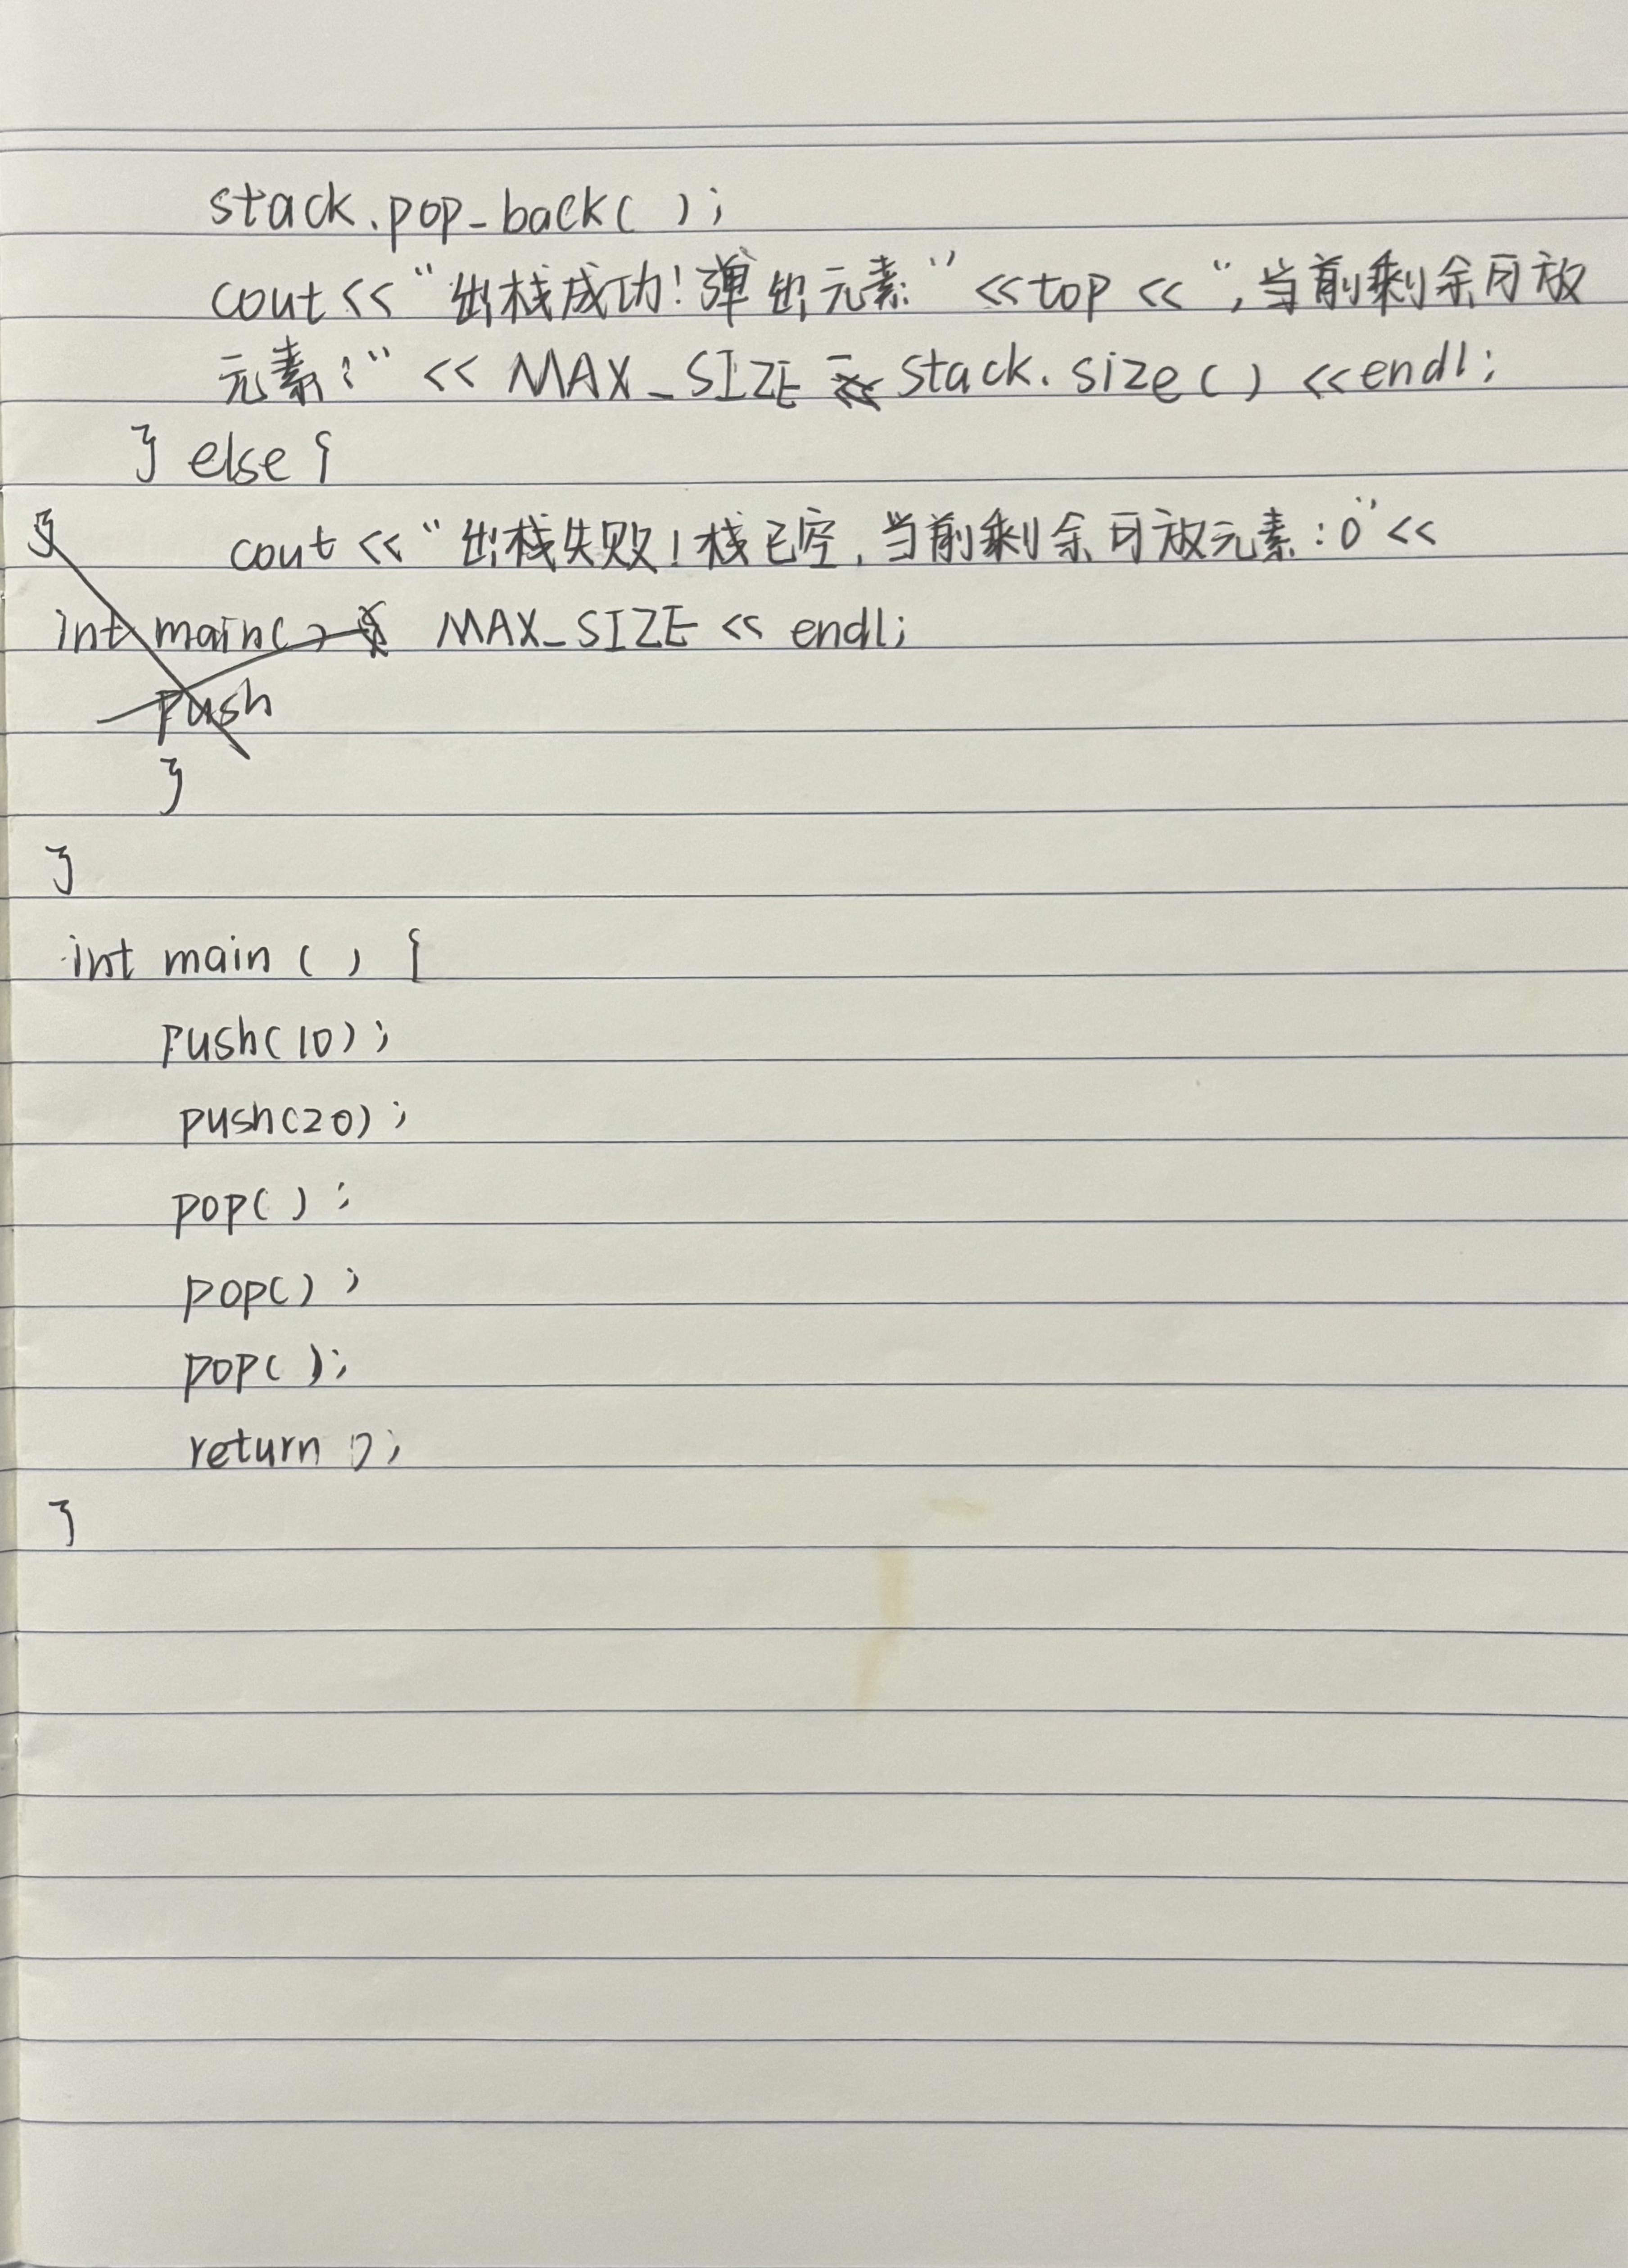 stack.pop_back( );
cout << "出栈成功!弹出元素:" << top << ",当前剩余可放
元素:" << MAX_SIZE - stack.size( ) << endl;
} else {
}
cout << "出栈失败!栈已空,当前剩余可放元素:0" <<
int main( ) { MAX_SIZE << endl;
push
}
}
int main ( ) {
push(10);
push(20);
pop( );
pop( );
pop( );
return 0;
}